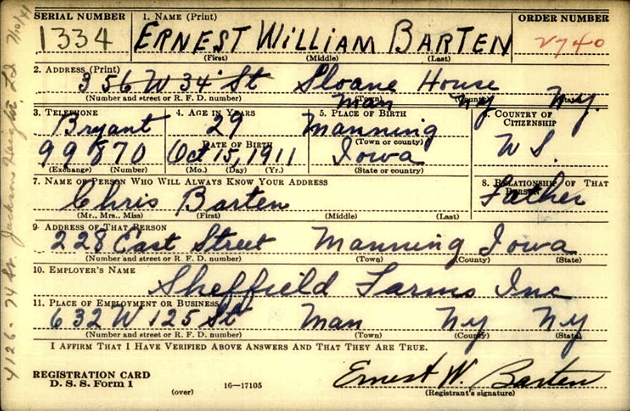 SERIAL NUMBER 1. NAME (Print) ORDER NUMBER
1334 ERNEST WILLIAM BARTEN 2740
(First) (Middle) (Last)
2. ADDRESS (Print)
356 W 34 St Sloane House
Man NY NY.
(Number and street or R. F. D. number) (Town) (County) (State)
3. TELEPHONE 4. AGE IN YEARS 5. PLACE OF BIRTH 6. COUNTRY OF CITIZENSHIP
Bryant 29 Manning
DATE OF BIRTH (Town or county)
99870 Oct 15, 1911 Iowa U S.
(Exchange) (Number) (Mo.) (Day) (Yr.) (State or country)
7. NAME OF PERSON WHO WILL ALWAYS KNOW YOUR ADDRESS 8. RELATIONSHIP OF THAT PERSON
Chris Barten Father
(Mr., Mrs., Miss) (First) (Middle) (Last)
9. ADDRESS OF THAT PERSON
228 East Street Manning Iowa
(Number and street or R. F. D. number) (Town) (County) (State)
10. EMPLOYER'S NAME
Sheffield Farms Inc
11. PLACE OF EMPLOYMENT OR BUSINESS
632 W 125 St Man NY NY
(Number and street or R. F. D. number) (Town) (County) (State)
I AFFIRM THAT I HAVE VERIFIED ABOVE ANSWERS AND THAT THEY ARE TRUE.
REGISTRATION CARD
D. S. S. Form 1 (over) 16—17105
Ernest W. Barten
(Registrant's signature)
4126 - 74 St. Jackson Heights